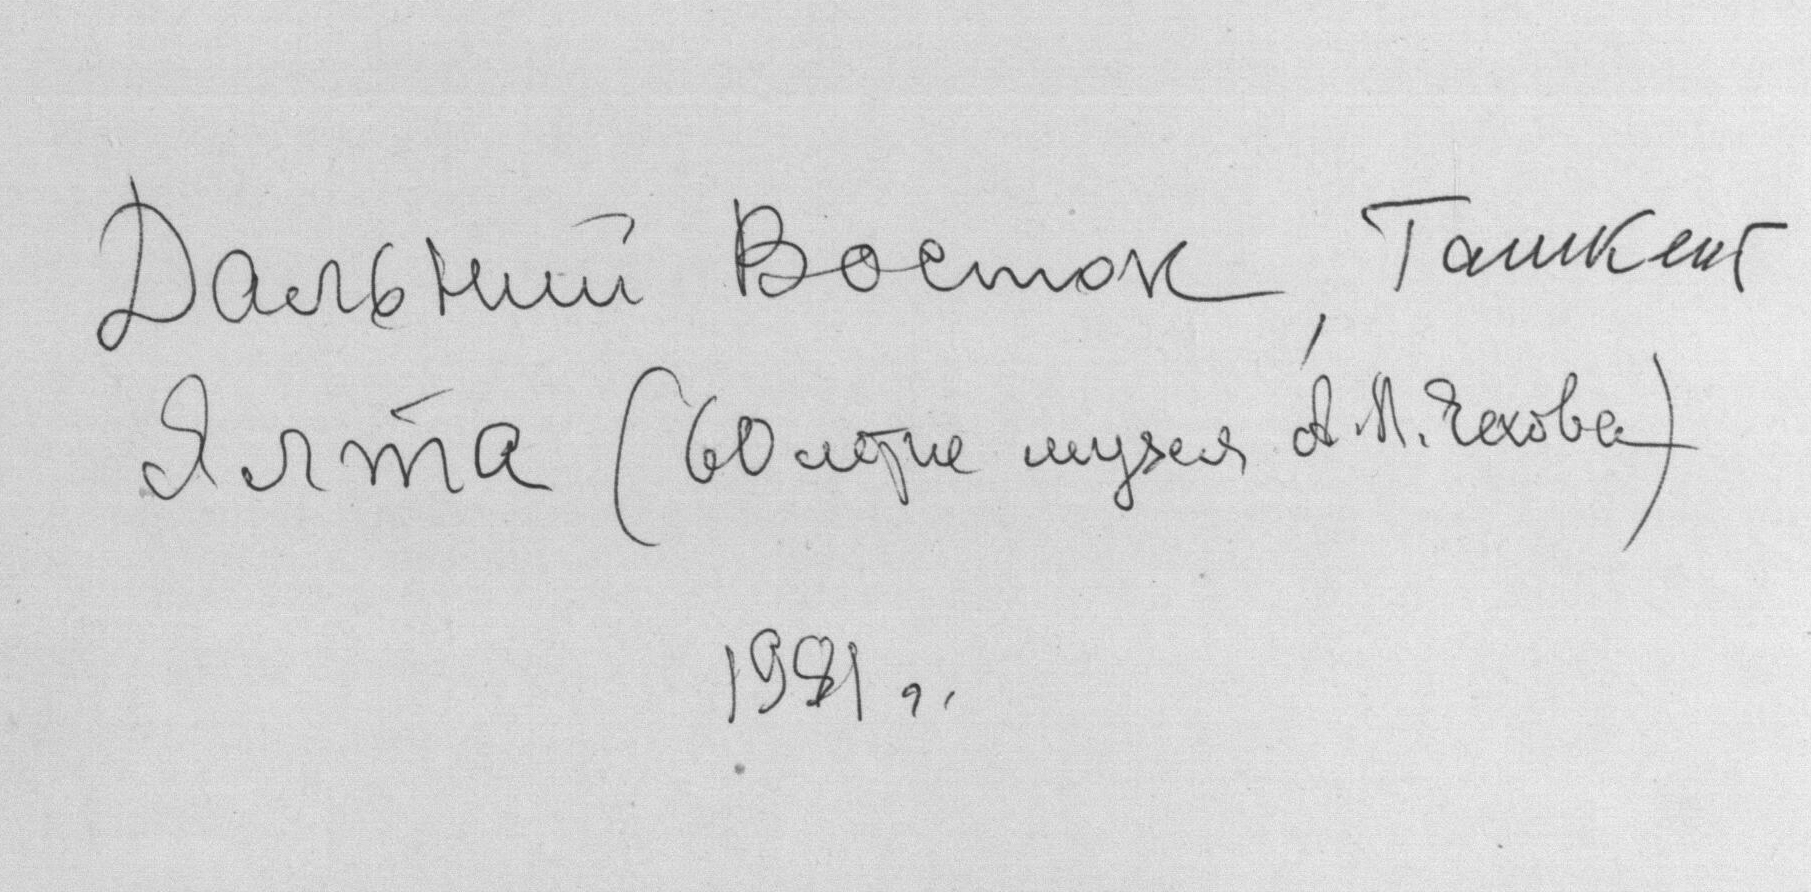 Дальний Восток, Ташкент
Ялта (60летие музея А.П.Чехова)
1981 г.